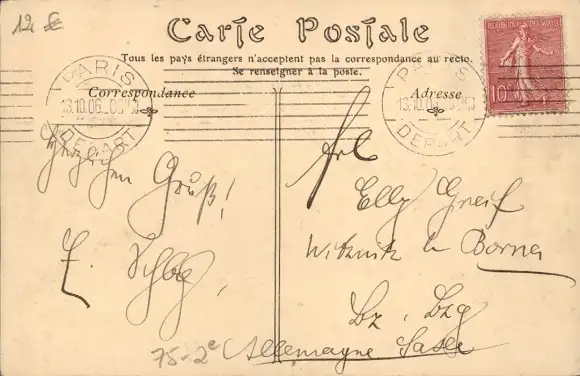 12 €
Carte Postale
Tous les pays étrangers n'acceptent pas la correspondance au recto.
Se renseigner à la poste.
REPUBLIQUE FRANÇAISE
10
PARIS
13.10.06
DEPART
PARIS
13.10
DEPART
Correspondance
Adresse
Herzlichen
Gruß!
Frl.
Elly Greif
Witznitz b Borna
Bz. Lzg
Allemagne Saxe
75-2e